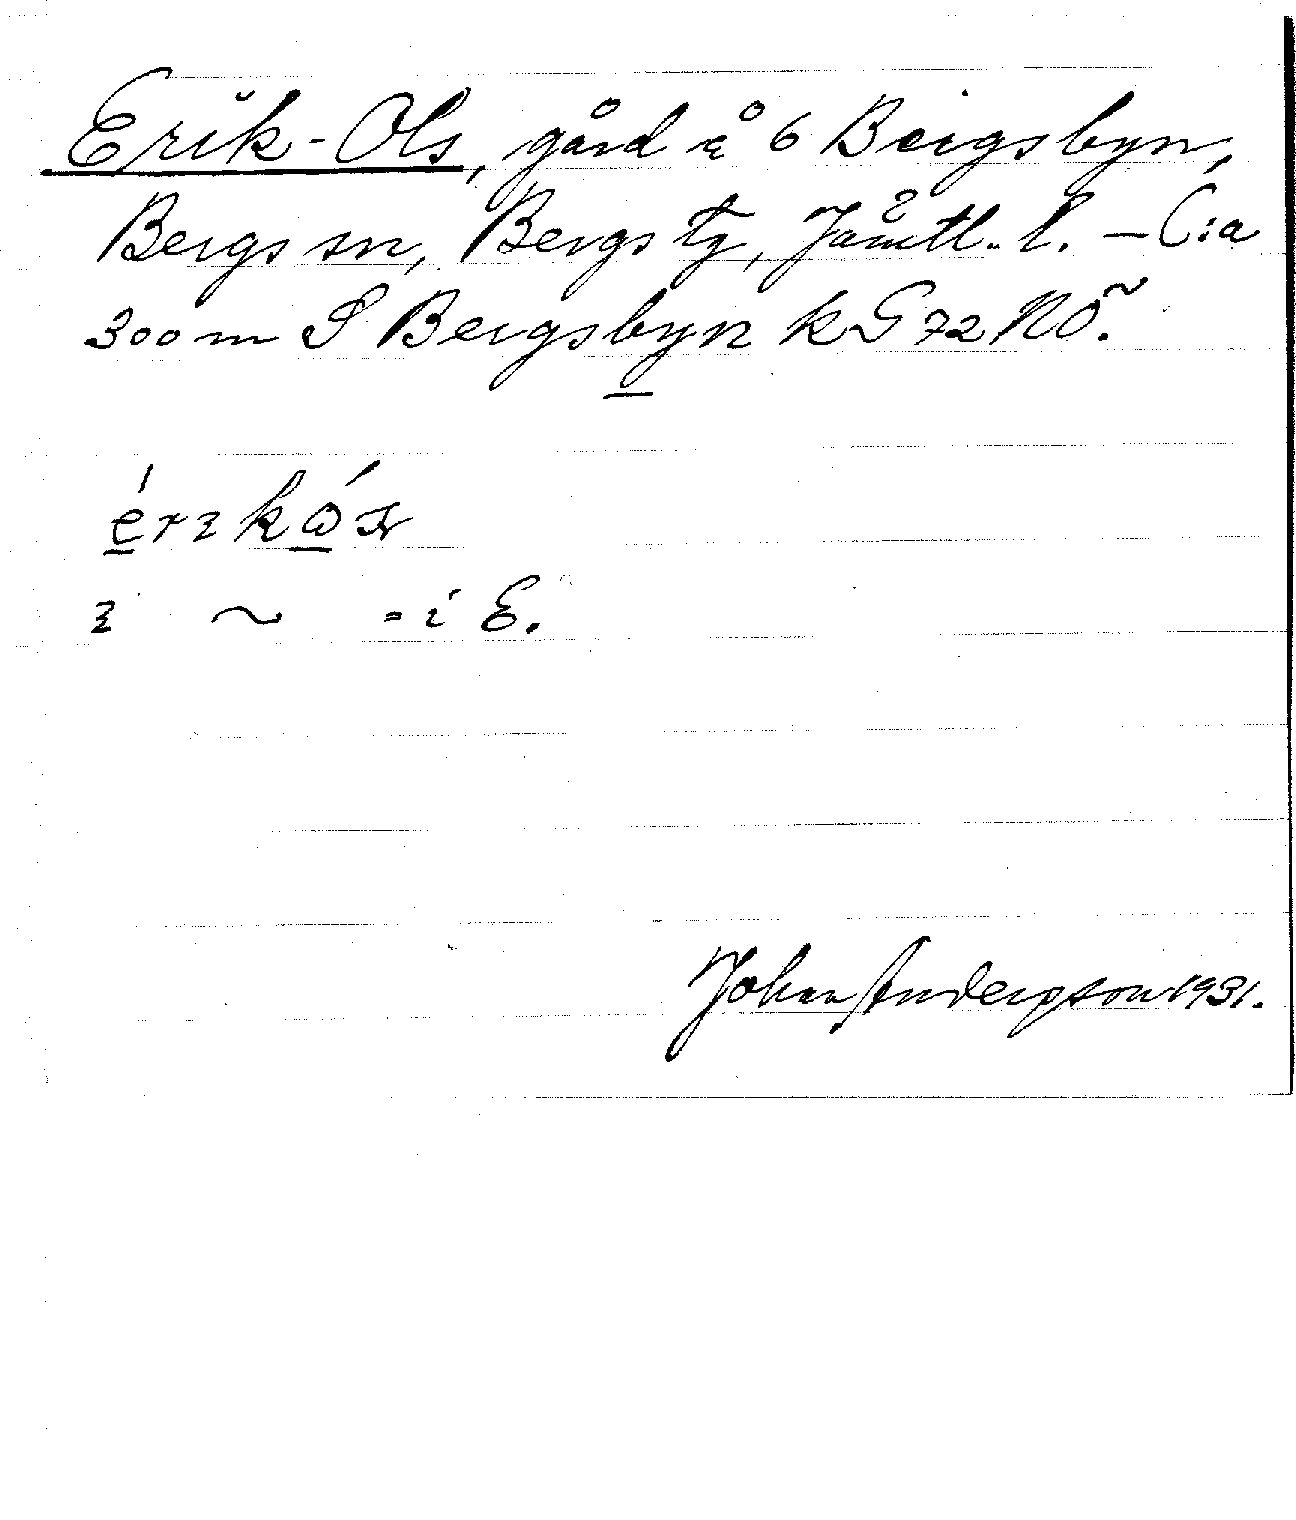 Erik-Ols, gård å 6 Bergsbyn,
Bergs sn, Bergs tg, Jämtl. l. – C:a
300 m S Bergsbyn kG72NÖ.
i ~ = i E.
Johan Anderson 1931.